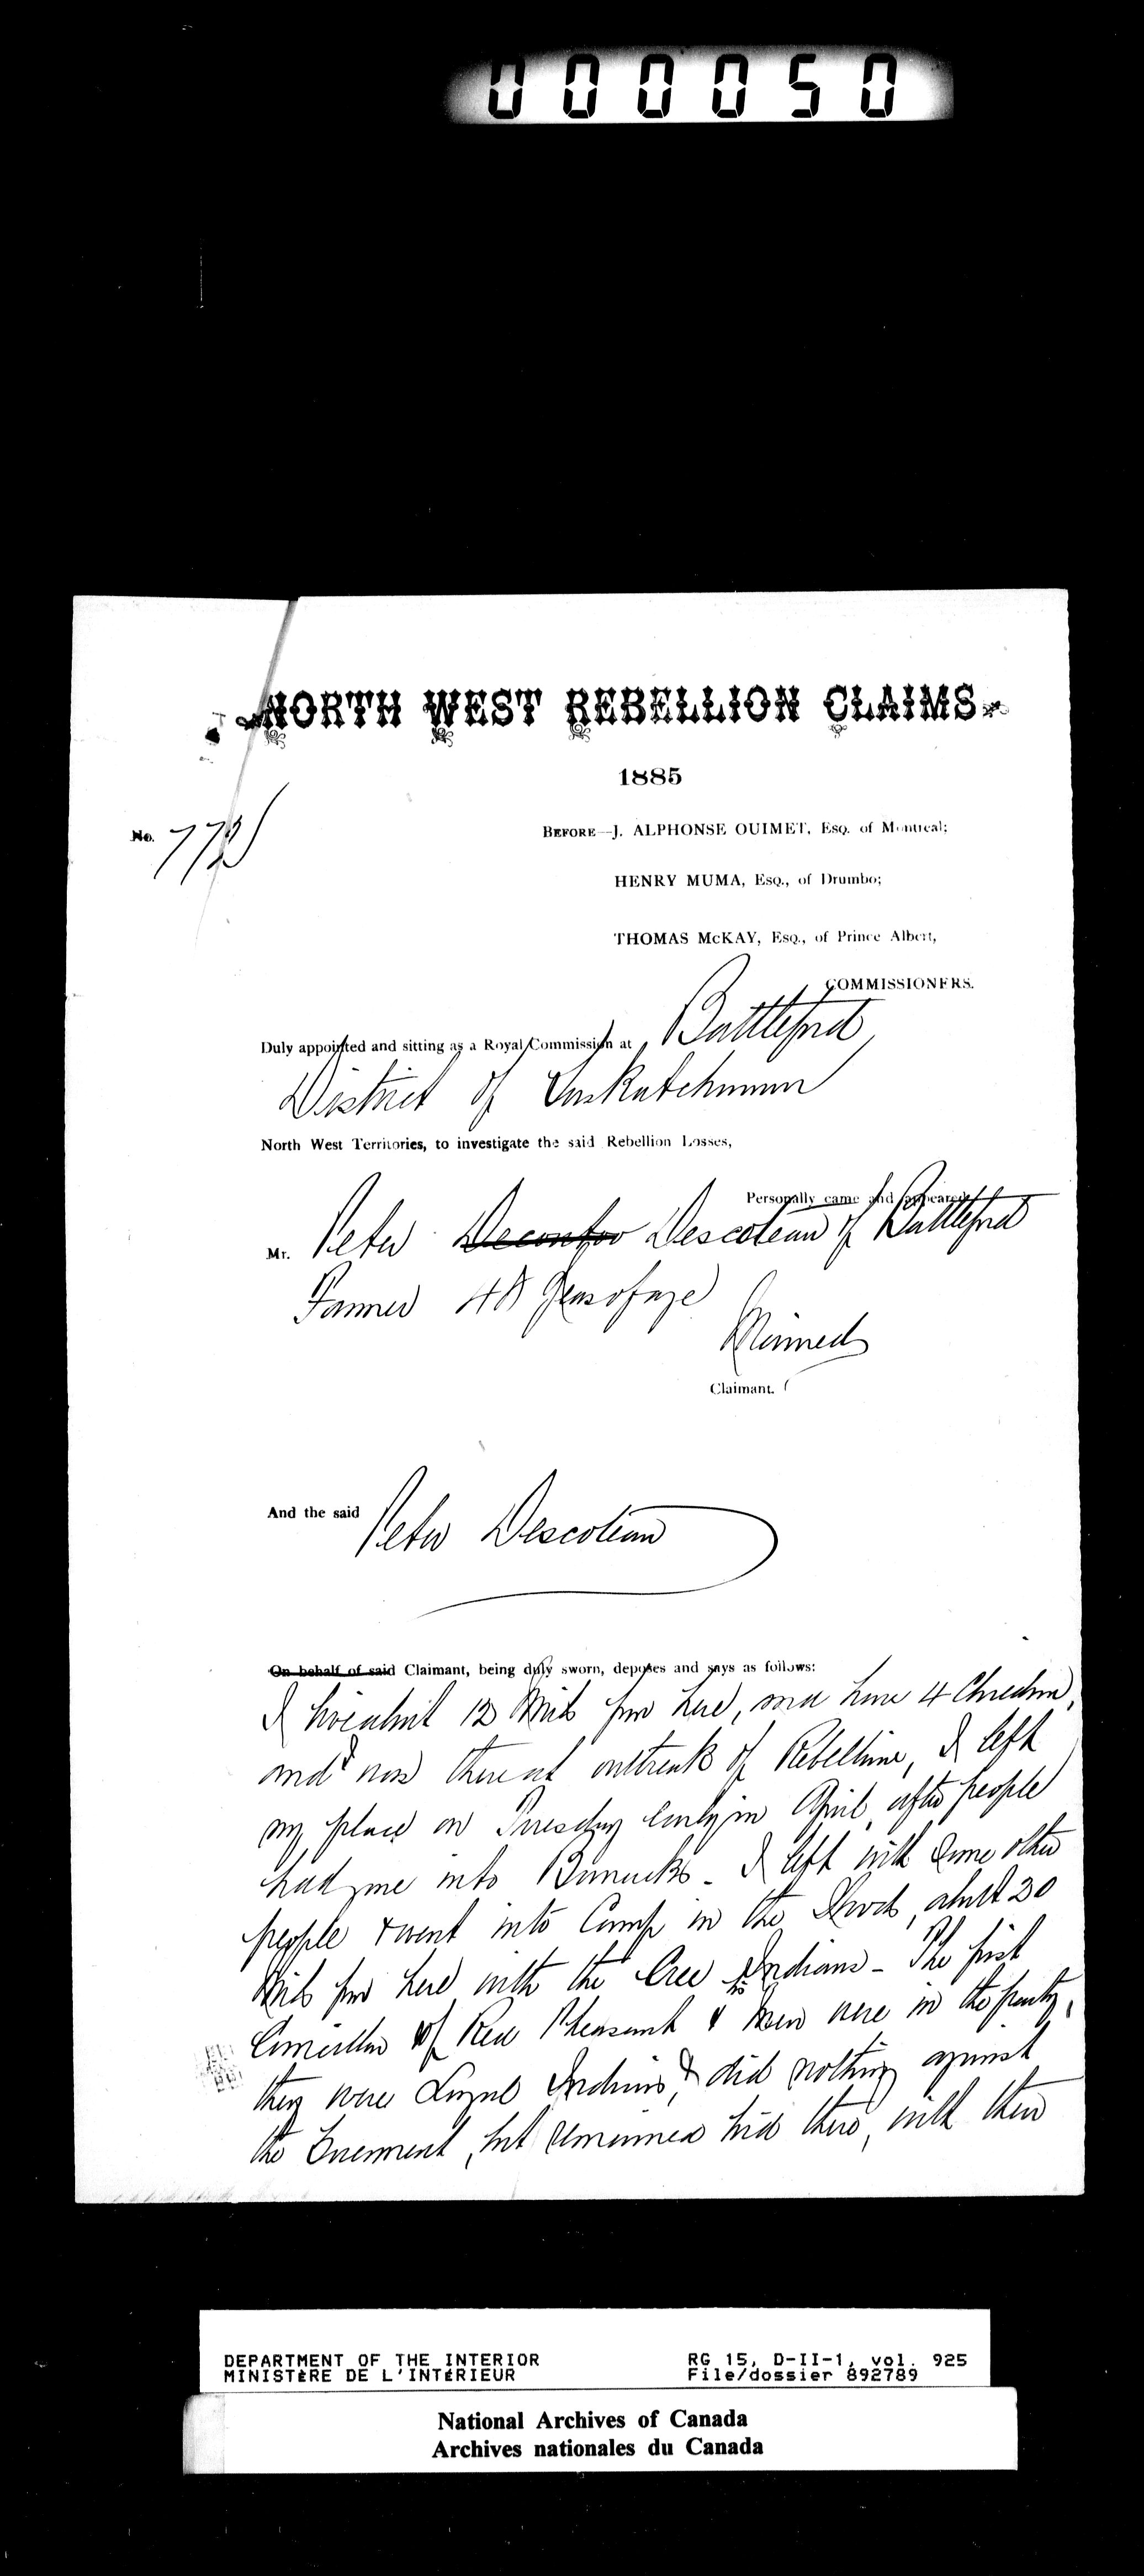 000050
NORTH WEST REBELLION CLAIMS
1885
No. 772
BEFORE—J. ALPHONSE OUIMET, Esq. of Montreal;
HENRY MUMA, Esq., of Drumbo;
THOMAS McKAY, Esq., of Prince Albert,
COMMISSIONERS.
Duly appointed and sitting as a Royal Commission at Battleford,
District of Saskatchewan
North West Territories, to investigate the said Rebellion Losses,
Personally came and appeared
Mr. Peter Descoteau of Battleford
Farmer 48 years of age
Married
Claimant.
And the said Peter Descoteau
On behalf of said Claimant, being duly sworn, deposes and says as follows:
I live about 12 Miles from here, and have 4 Children,
and was there at outbreak of Rebellion, I left
my place on Tuesday early in April, after people
had gone into Barracks - I left with some other
people & went into Camp in the Woods, about 30
Miles from here with the Cree Indians - The first
Councillor of Red Pheasant & men were in the party,
they were Loyal Indians, & did nothing against
the Government, but remained hid there, with their
DEPARTMENT OF THE INTERIOR
MINISTÈRE DE L'INTÉRIEUR
RG 15, D-II-1, vol. 925
File/dossier 892789
National Archives of Canada
Archives nationales du Canada